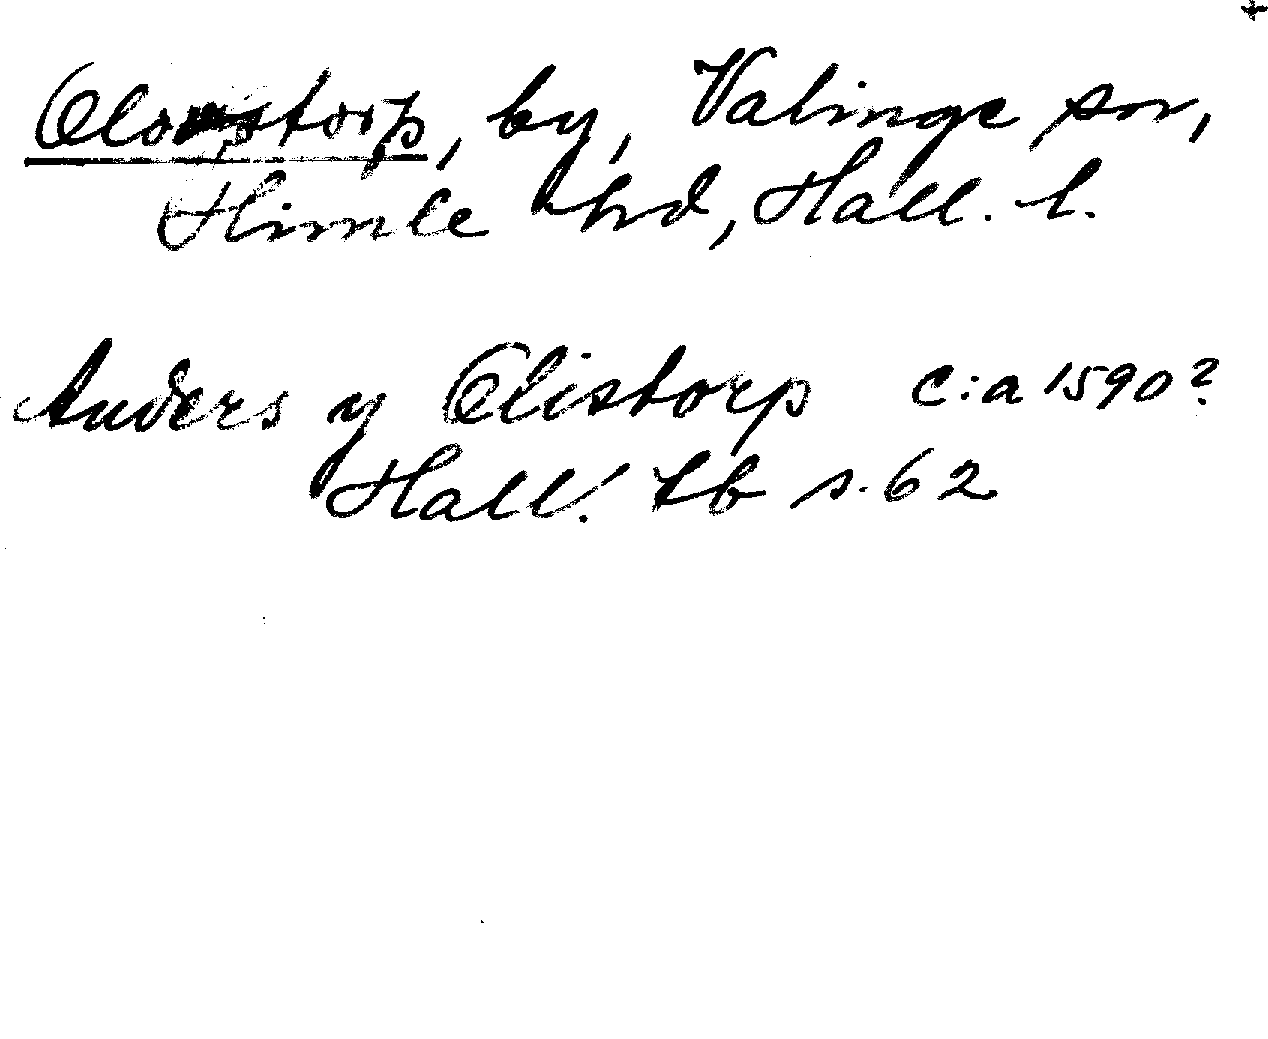 +
Olofstorp, by, Valinge sn,
Himle hd, Hall. l.
Anders y Olistorp c:a 1590?
Hall. Lb s. 62